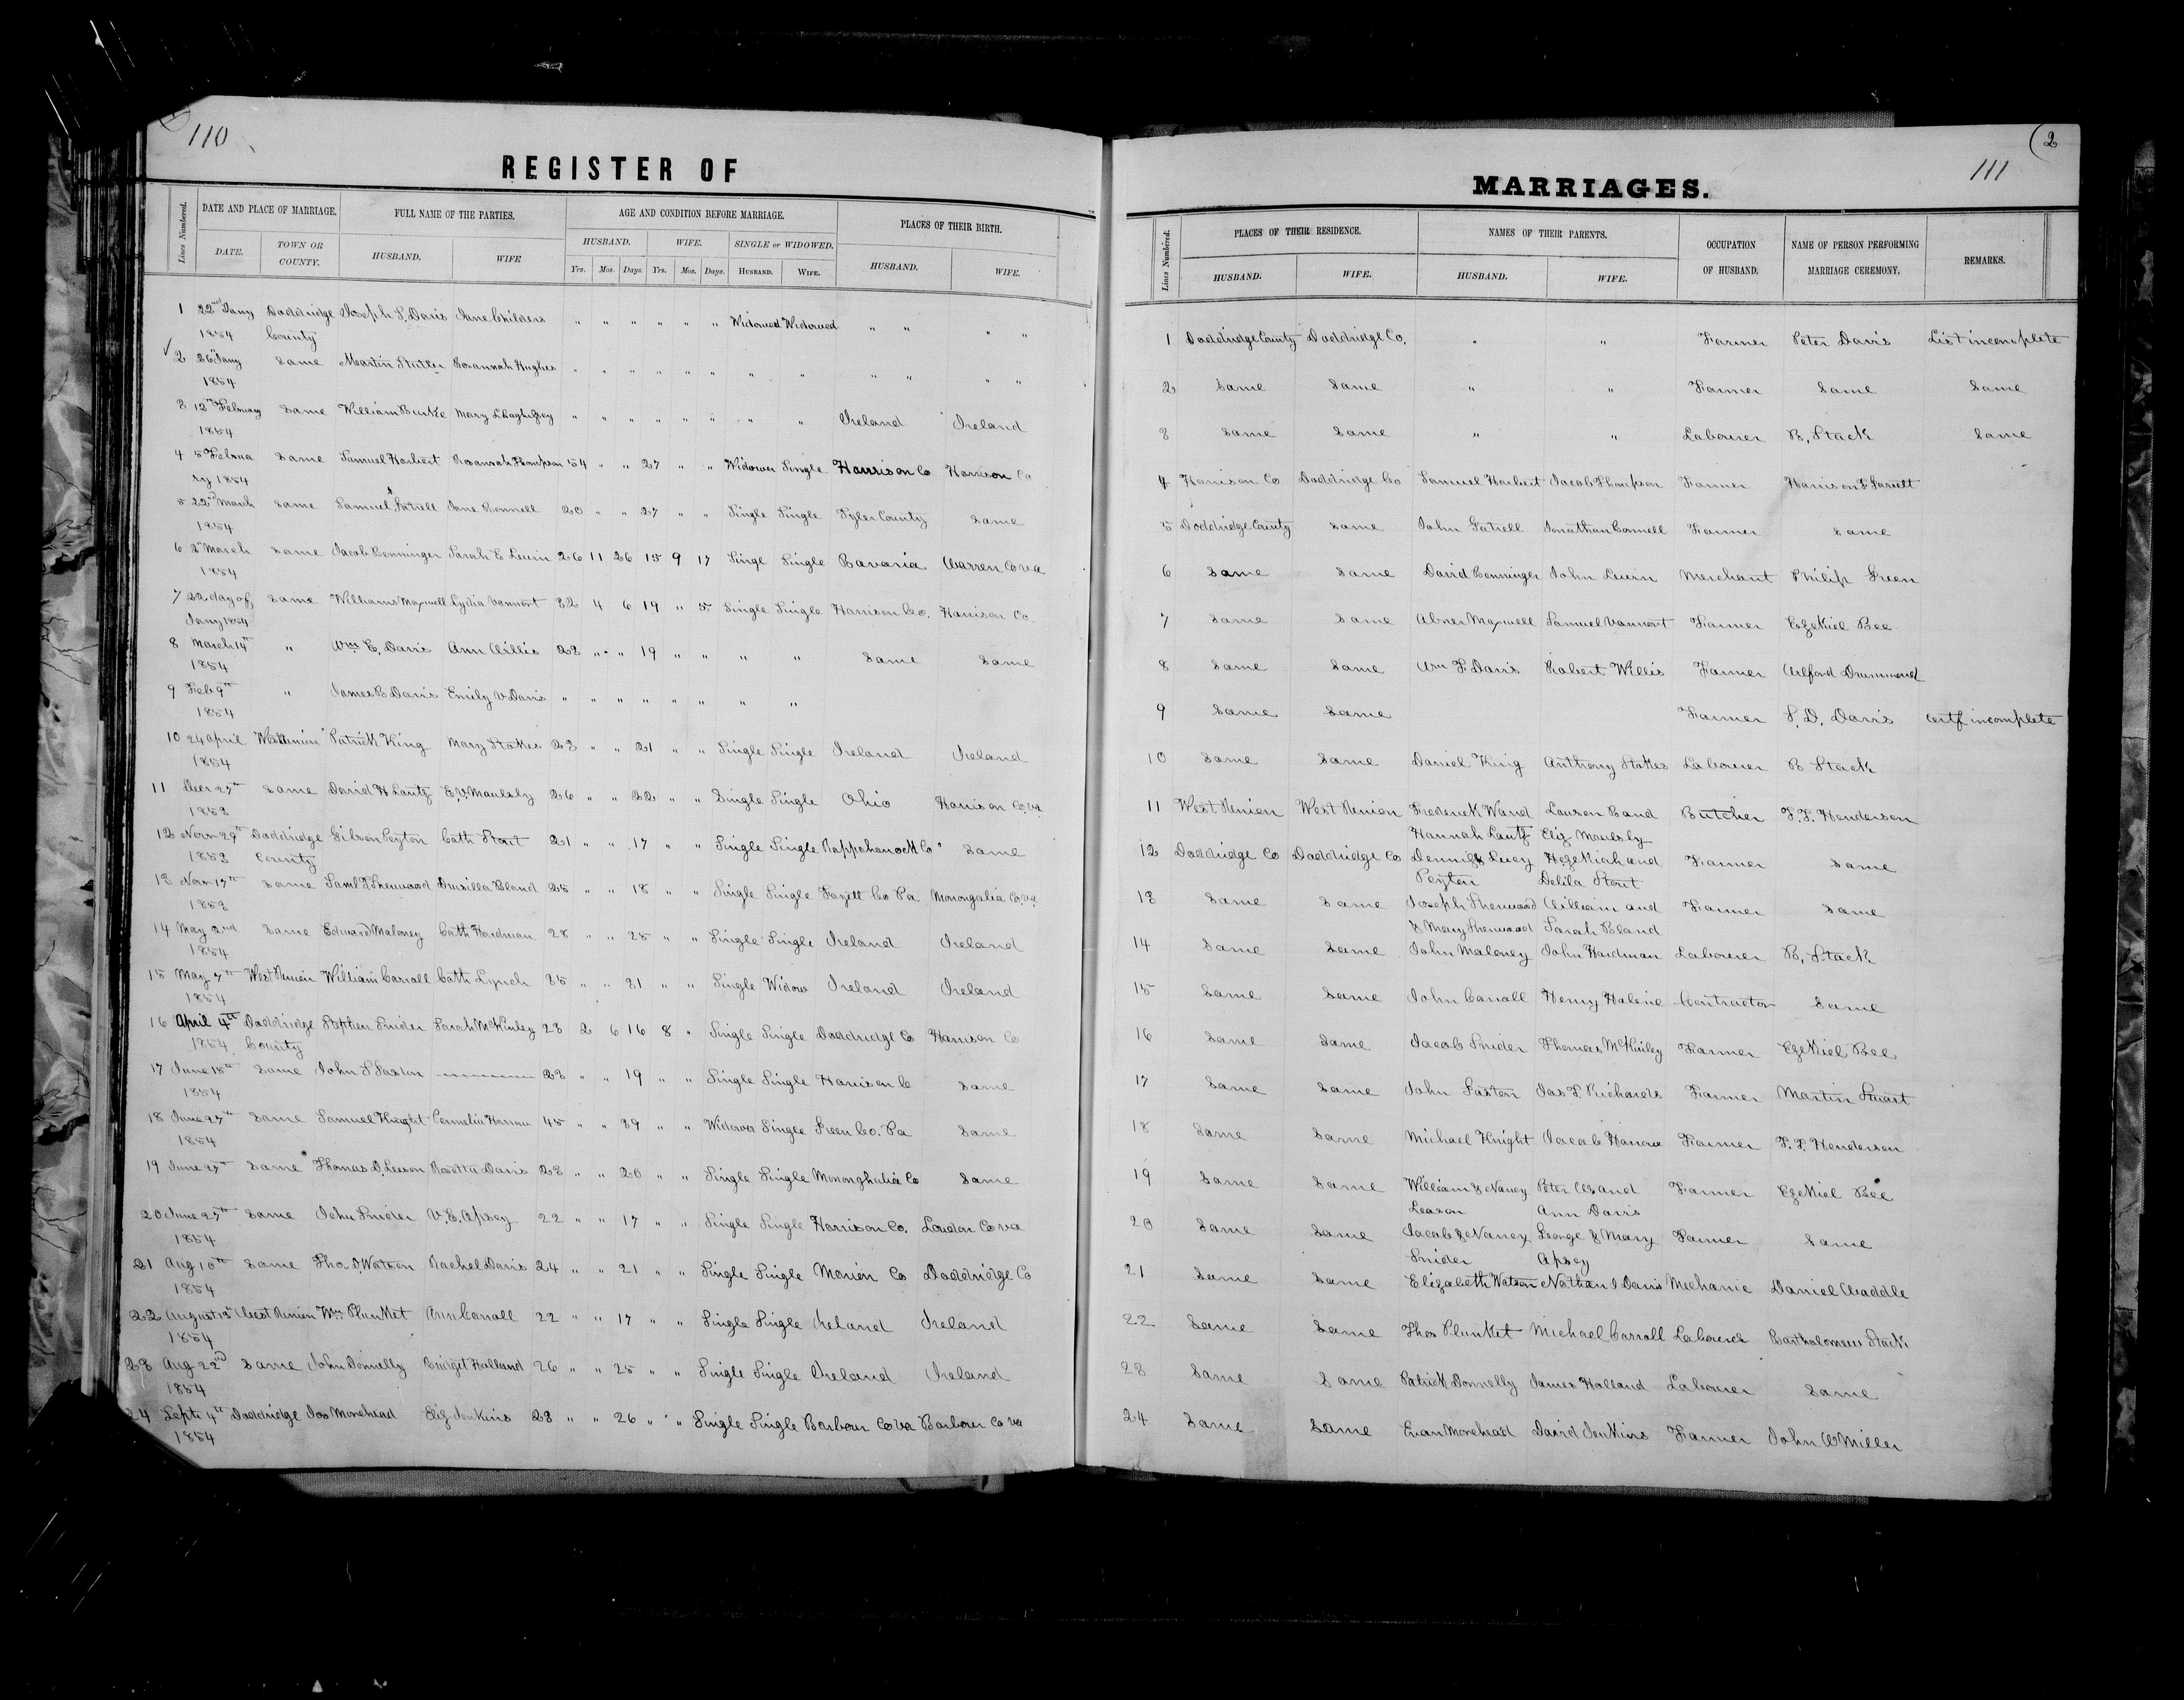 110
REGISTER OF
Lines Numbered.
DATE AND PLACE OF MARRIAGE.
FULL NAME OF THE PARTIES.
AGE AND CONDITION BEFORE MARRIAGE.
PLACES OF THEIR BIRTH.
DATE.
TOWN OR COUNTY.
HUSBAND.
WIFE
HUSBAND.
WIFE.
SINGLE or WIDOWED.
HUSBAND.
WIFE.
Yrs. Mos. Days. Yrs. Mos. Days. HUSBAND. WIFE.
1 22nd Jany Doddridge Joseph S. Davis Jane Childers " " " " " " Widowed Widowed " " " "
1854 County
2 26 Jany Same Martin Stutler Rosannah Hughes " " " " " " " " " " " "
1854
3 12th February Same William Burke Mary " " " " " " " " Ireland Ireland
1854
4 5 Februa Same Samuel Harbert Rosannah Thompson 54 " " 27 " " Widower Single Harrison Co Harrison Co
ry 1854
5 22nd March Same Samuel Gatrell Jane Bonnell 20 " " 27 " " Single Single Tyler County Same
1854
6 2nd March Same Jacob Benninger Sarah E Leuin 26 11 26 15 9 17 Singl Single Bavaria Warren Co va
1854
7 22 day of Same Williams Maxwell Lydia Vannort 32 4 6 19 " 5 Single Single Harrison Co. Harrison Co.
Jany 1854
8 March 14th " Wm E. Davis Ann Willis 23 " " 19 " " " " Same Same
1854
9 Feb 9th " James B Davis Emily V Davis " " " " " " " "
1854
10 24 April West Union Patrick King Mary Stokes 23 " " 21 " " Single Single Ireland Ireland
1854
11 Decr 27th Same David H Lantz E. V. Maulsly 26 " " 22 " " Single Single Ohio Harrison Co. va
1853
12 Novr 29th Doddridge Gibson Peyton Cath Stout 21 " " 17 " " Single Single Rappehanock Co Same
1853 County
13 Novr 17th Same Saml T Sherwood Drusilla Bland 25 " " 18 " " Single Single Fayett Co Pa Monongalia Co. va.
1853
14 May 2nd Same Edward Maloney Cath Hardman 28 " " 25 " " Single Single Ireland Ireland
1854
15 May 7th West Union William Carroll Cath Lynch 35 " " 31 " " Single Widow Ireland Ireland
1854
16 April 4th Doddridge Stephen Snider Sarah McKinley 23 2 6 16 8 " Single Single Doddridge Co Harrison Co
1854 County
17 June 18th Same John S Saxton 23 " " 19 " " Single Single Harrison Co Same
1854
18 June 27th Same Samuel Knight Permelia Harrow 45 " " 39 " " Widower Single Green Co. Pa Same
1854
19 June 27th Same Thomas D. Leeson Rosetta Davis 23 " " 20 " " Single Single Mononghalia Co Same
20 June 27th Same John Snider V. E. Apsey 22 " " 17 " " Single Single Harrison Co. Loudon Co va
1854
21 Aug 10th Same Tho. D. Watson Rachel Davis 24 " " 21 " " Single Single Marion Co Doddridge Co
1854
22 August 13th West Union Wm Plunket Ann Carroll 22 " " 17 " " Single Single Ireland Ireland
1854
23 Aug 22nd Same John Donnelly Bridget Holland 26 " " 25 " " Single Single Ireland Ireland
1854
24 Sept 4th Doddridge Jos Morehead Eliz Jenkins 23 " " 26 " " Single Single Barbour Co va Barbour Co va
1854
(2
111
MARRIAGES.
Lines Numbered.
PLACES OF THEIR RESIDENCE.
NAMES OF THEIR PARENTS.
OCCUPATION OF HUSBAND.
NAME OF PERSON PERFORMING MARRIAGE CEREMONY.
REMARKS.
HUSBAND.
WIFE.
HUSBAND.
WIFE.
1 Doddridge County Doddridge Co. " " Farmer Peter Davis List incomplete
2 Same Same " " Farmer Same Same
3 Same Same " " Labourer B. Stack Same
4 Harrison Co Doddridge Co Samuel Harbert Jacob Thompson Farmer Harrison F Garrett
5 Doddridge County Same John Gatrell Jonathan Bonnell Farmer Same
6 Same Same David Benninger John Leuin Merchant Philip Green
7 Same Same Abner Maxwell Samuel Vannort Farmer Ezekiel Bee
8 Same Same Wm F Davis Robert Willis Farmer Alford Drummond
9 Same Same Farmer S. D. Davis Certf incomplete
10 Same Same Daniel King Anthony Stokes Labourer B Stack
11 West Union West Union Frederick W and Lawson B and Butcher F. F. Henderson
Hannah Lantz Eliz Maulsly
12 Doddridge Co Doddridge Co Dennis & Lucy Hezekiah and Farmer Same
Peyton Delila Stout
13 Same Same Joseph Sherwood William and Farmer Same
& Mary Sherwood Sarah Bland
14 Same Same John Maloney John Hardman Labourer B. Stack
15 Same Same John Carroll Henry Contractor Same
16 Same Same Jacob Snider Thomas McKinley Farmer Ezekiel Bee
17 Same Same John Saxton Jas S. Richards Farmer Martin Stuart
18 Same Same Michael Knight Jacob Harrow Farmer F. F. Henderson
19 Same Same William & Nancy Peter W and Farmer Ezekiel Bee
Leason Ann Davis
20 Same Same Jacob & Nancy George & Mary Farmer Same
Snider Apsey
21 Same Same Elizabeth Watson Nathan Davis Mechanic Daniel Waddle
22 Same Same Thos Plunket Michael Carroll Labourer Bartholomew Stack
23 Same Same Patrick Donnelly James Holland Labourer Same
24 Same Same Evan Morehead David Jenkins Farmer John W Miller